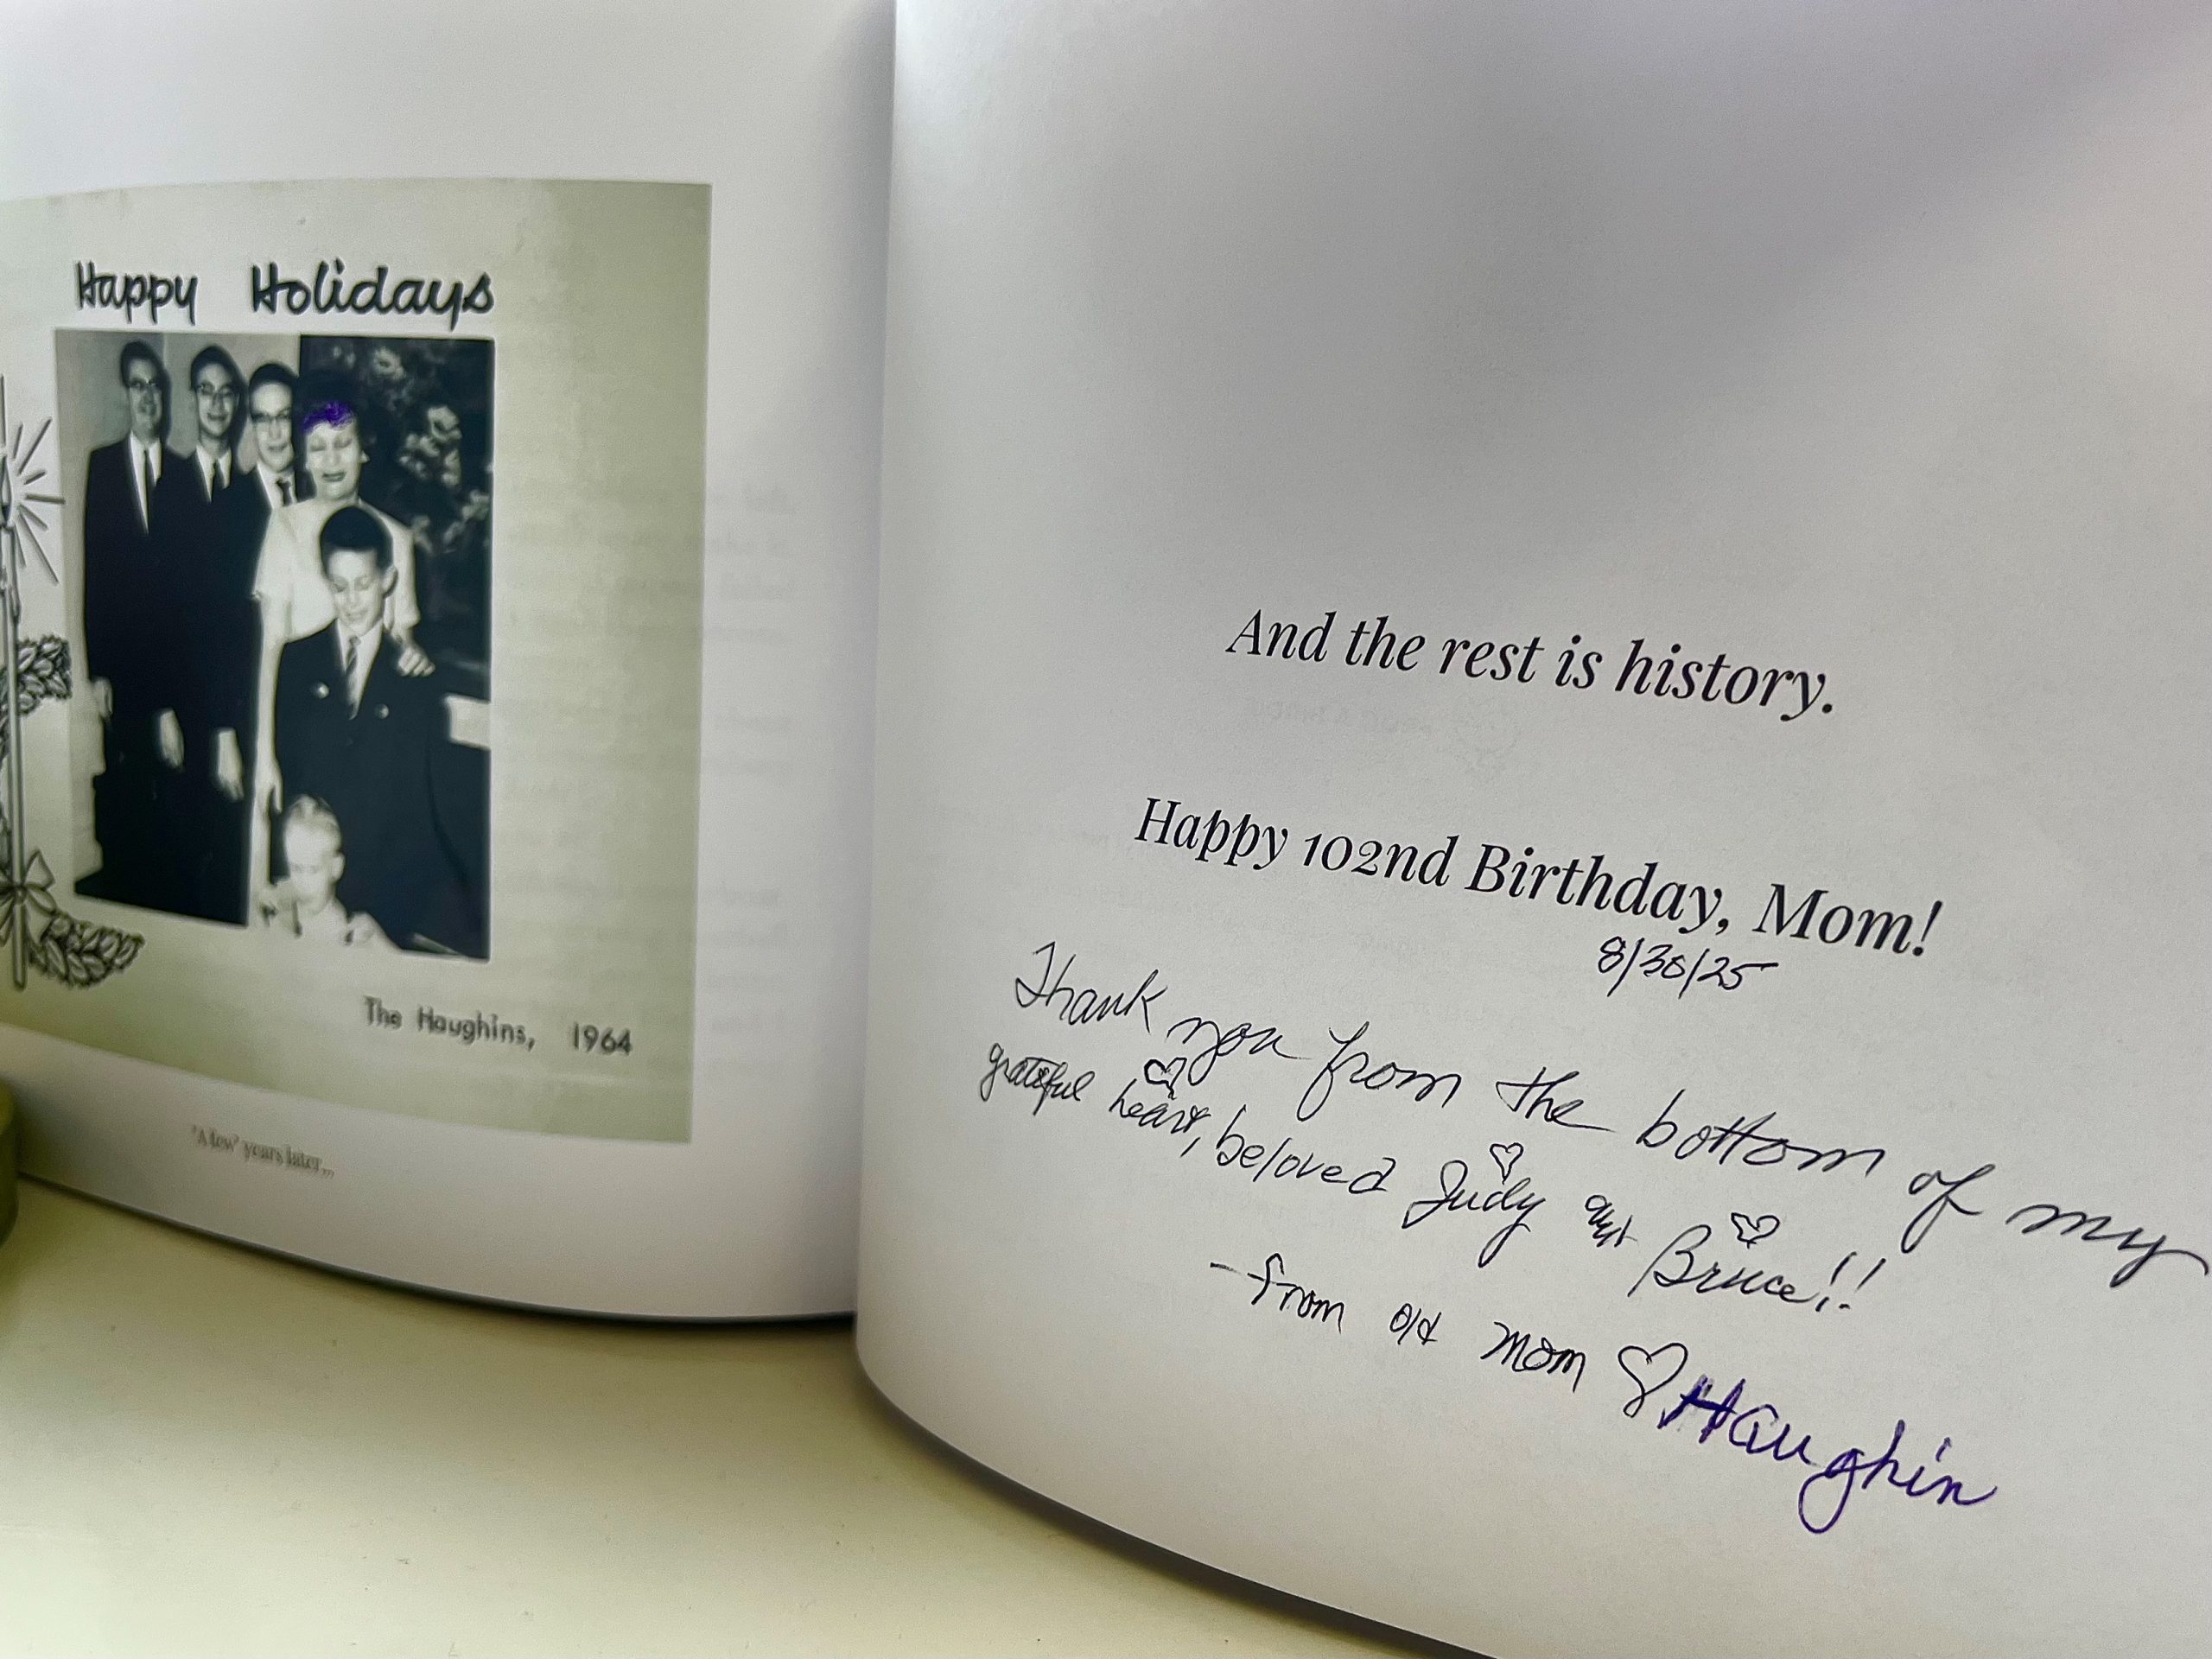 Happy Holidays
The Haughins, 1964
'A few' years later...
And the rest is history.
Happy 102nd Birthday, Mom!
8/30/25
Thank you from the bottom of my
grateful heart, beloved Judy and Bruce!!
- from old mom ♡ Haughin